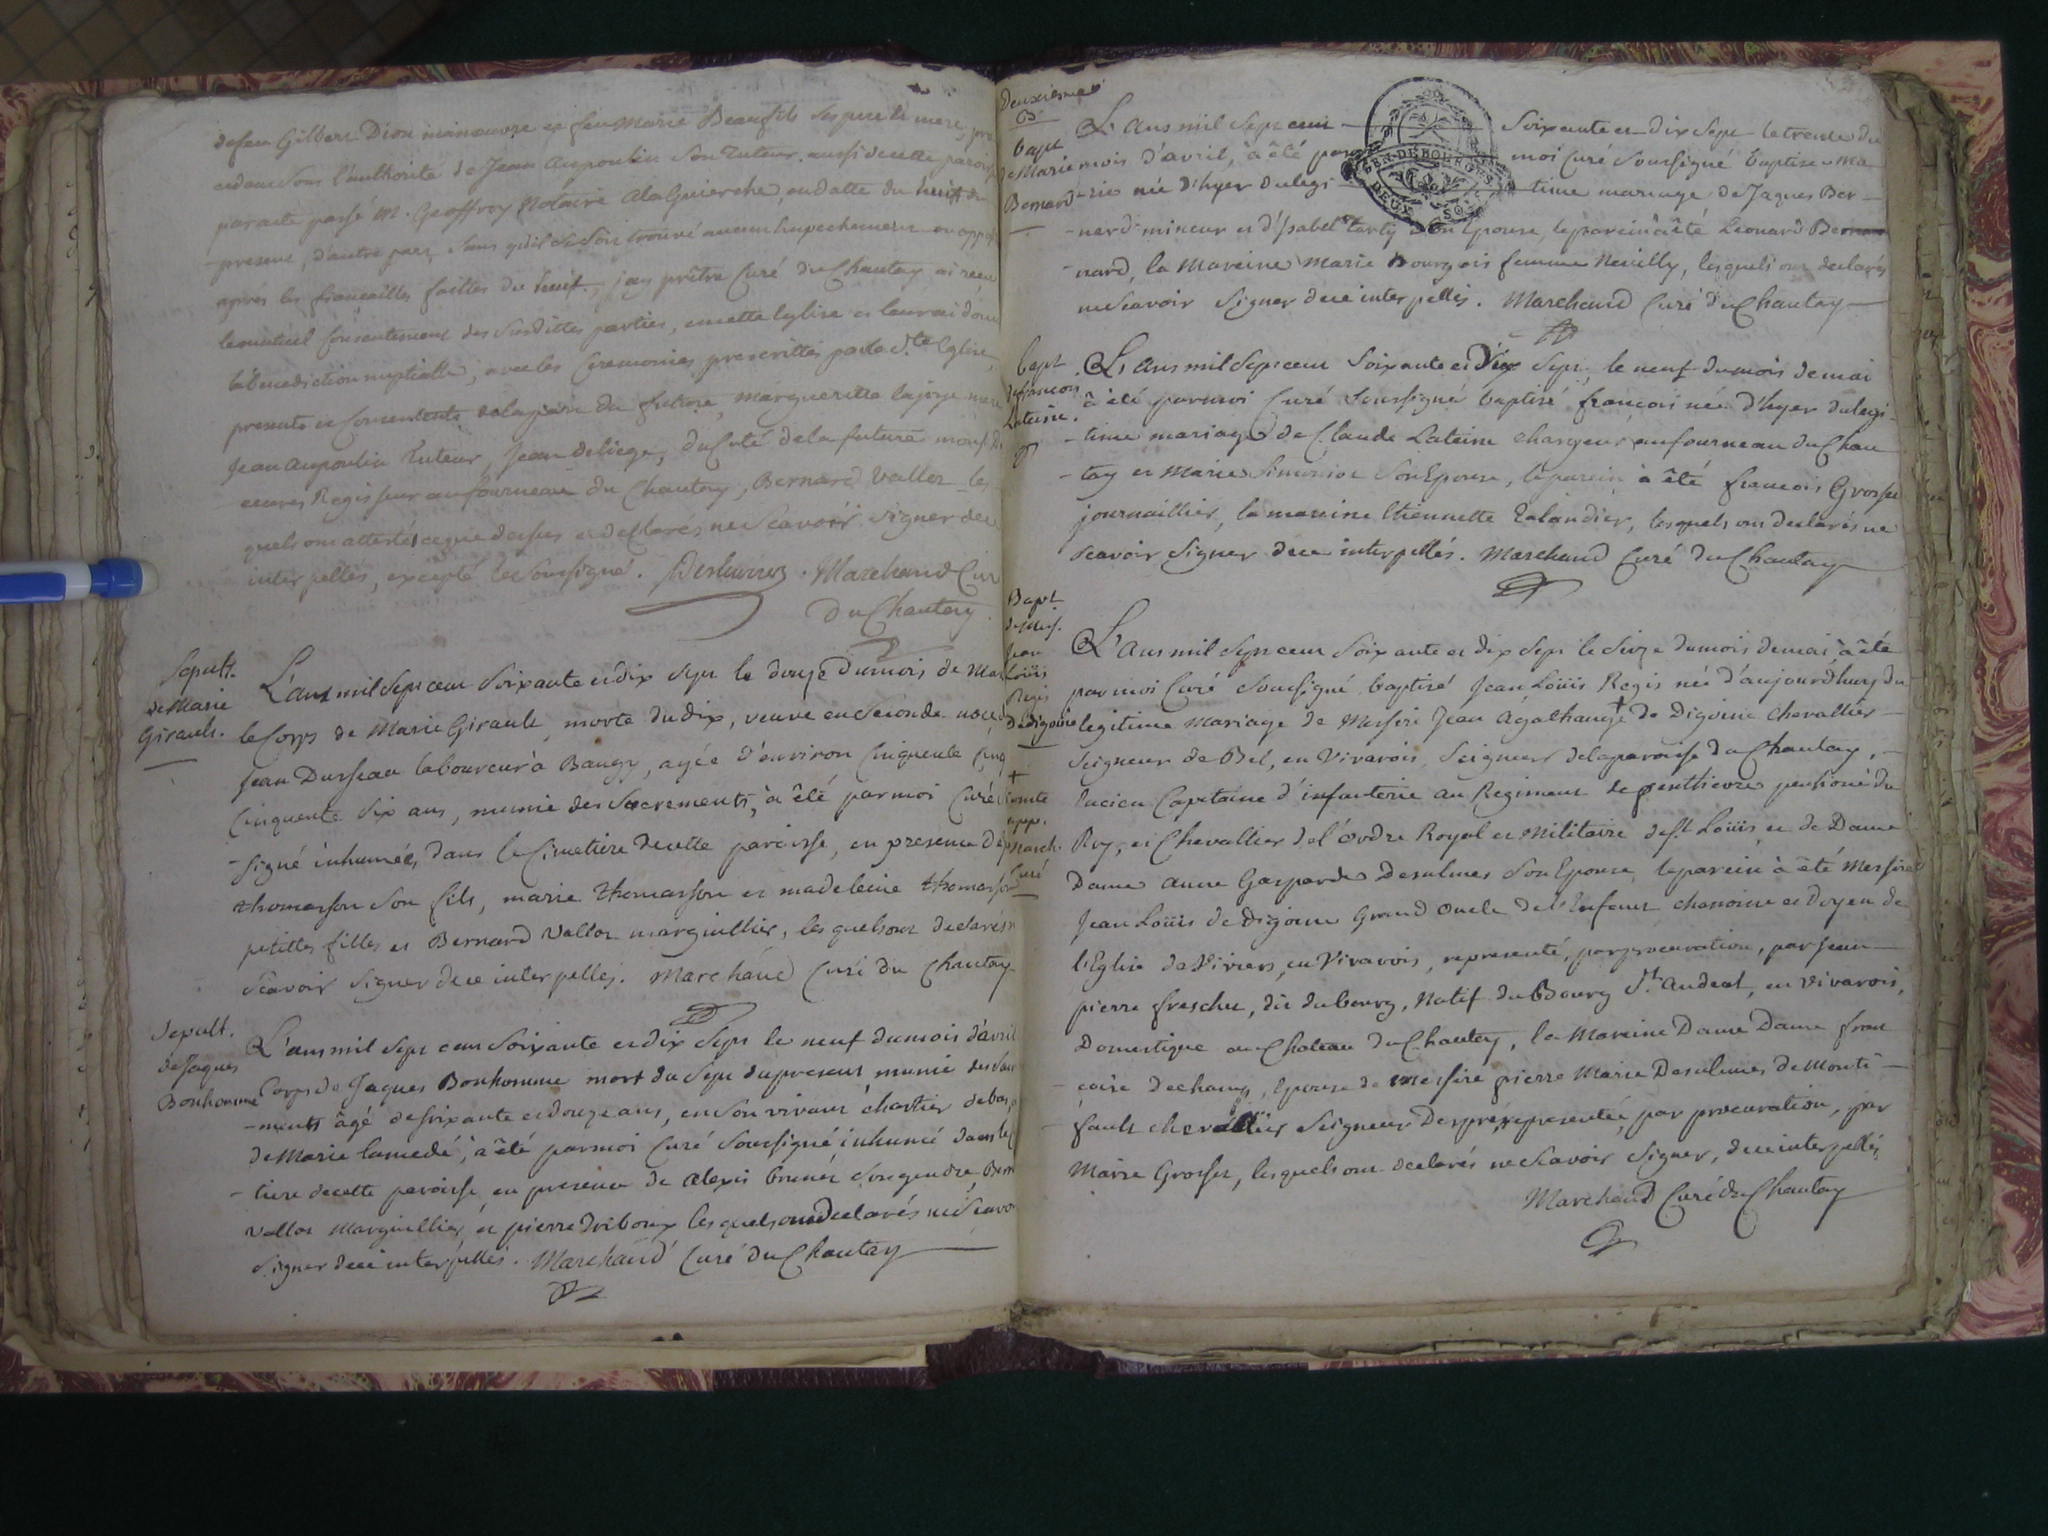 defeu Gilbert Dion manœuvre et feu Marie Beaufils ses pere et mere,
sous l'authorité de Jean Aupoulin son tuteur, aussi de cette paroisse
par acte passé M. Geoffroy Notaire a la Guierche, en datte du huit du
present, d'autre part, sans qu'il se soit trouvé aucun empechement ou oppo
après les fiançailles faittes du huit, j'ay prêtre Curé du Chautay ai recu
le mutuel consentement des susdittes parties, en cette Eglise et leur ai donné
la benediction nuptialle, avec les Ceremonies prescrittes par la Ste Eglise,
presents et consentents de la part du futur, margueritte lajoye mere
Jean Aupoulin tuteur, Jean deliege, du Côté de la future
Regisseur au fourneau du Chautay, Bernard Vallot les
quels ont attestés ce que dessus et declarés ne scavoir signer de ce
interpellés, excepté le soussigné. Marchand Cur
du Chautay
Sepult.
de Marie
Girault.
L'an mil sept cent soixante et dix sept le douze du mois de Mai
le Corps de Marie Girault, morte du dix, veuve en seconde noce
Jean Dusseau laboureur à Baugy, agée d'environ Cinquente Cinq
Cinquente six ans, munie des sacrements, à êté par moi Curé
signé inhumée, dans le Cimetiere de cette paroisse, en presence de
thomasson son fils, marie thomasson et madeleine thomasson
petittes filles et Bernard Vallot marguillier, lesquels ont declarés
scavoir signer de ce interpellés. Marchand Curé du Chautay
Sepult.
de Jaques
Bonhomme
L'an mil sept cent soixante et dix sept le neuf du mois d'avril
Corps de Jaques Bonhomme mort du sept du present munie des sacr
-ments âgé de soixante et douze ans, en son vivant chartier de bois,
de Marie lamedé, à êté par moi Curé soussigné inhumé dans le
-tiere de cette paroisse, en presence de Alexis brunet son gendre, Bern
Vallot Marguillier, et pierre Driboux lesquels ont declarés ne scavo
signer de ce interpellés. Marchand Curé du Chautay
Deuxieme
bapt
de Marie
Bernard
L'an mil sept cent soixante et dix sept le trente du
mois d'avril, à êté par moi Curé soussigné baptisé Ma
-rie née d'hyer du legi time mariage de Jaques Ber-
-nard mineur et d'Isabel tarty son Epouse, le parein à êté Leonard Ber
nard, la Mareine Marie Bourgois femme Neuilly, lesquels ont declarés
ne scavoir signer de ce interpellés. Marchand Curé du Chautay
GEN. DE BOURGES
DEUX SOLS
bapt
de francois
Lateine.
L'an mil sept cent soixante et dix sept, le neuf du mois de mai
à êté par moi Curé soussigné baptisé françois née d'hyer du legi-
-time mariage de Claude Lateine chargeur au fourneau du Chau
tay et Marie Simoniot son Epouse, le parein à êté francois Grosset
journaillier, la mareine Etiennette Talandier, lesquels ont declarés ne
scavoir signer de ce interpellés. Marchand Curé du Chautay
Bapt
Jean
Loüis
Regis
De digoine
L'an mil sept cent soixante et dix sept le seize du mois de mai à êté
par moi Curé soussigné baptisé Jean Loüis Regis née d'aujourd'huy du
legitime Mariage de Messire Jean Agathange + de Digoine chevallier
Seigneur de Bel, en Vivarois, Seigneur de la paroisse du Chautay,
Ancien Capitaine d'infanterie au Regiment de penthievre pensioné du
Roy, et Chevallier de l'ordre Royal et Militaire de St Loüis et de Dame
Dame Anne Gasparde Desulmes son Epouse, le parein à êté Messire
Jean Loüis de Digoine Grand oncle de l'Enfant, chanoine et Doyen de
l'Eglise de Viviers, en Vivarois, representé, par procuration, par Jean
pierre freschu, dit dubourg, Natif du Bourg St Andeol, en vivarois,
Domestique au Chateau du Chautay, la Mareine Dame Dame fran
Epouse de Messire pierre Marie Desulmes de Monti-
-fault chevallier Seigneur representée, par procuration, par
Marie Grosset, lesquels ont declarés ne scavoir signer, de ce interpellés,
Marchand Curé du Chautay
+
Comte
app.
March.
Curé